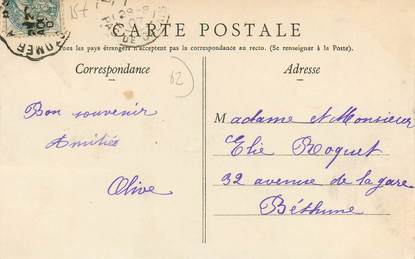 CARTE POSTALE
Tous les pays étrangers n'acceptent pas la correspondance au recto. (Se renseigner à la Poste).
Correspondance
Adresse
62
Bon souvenir
Amitiés
Olive
Madame & Monsieur
Elie Roquet
32 avenue de la gare
Béthune